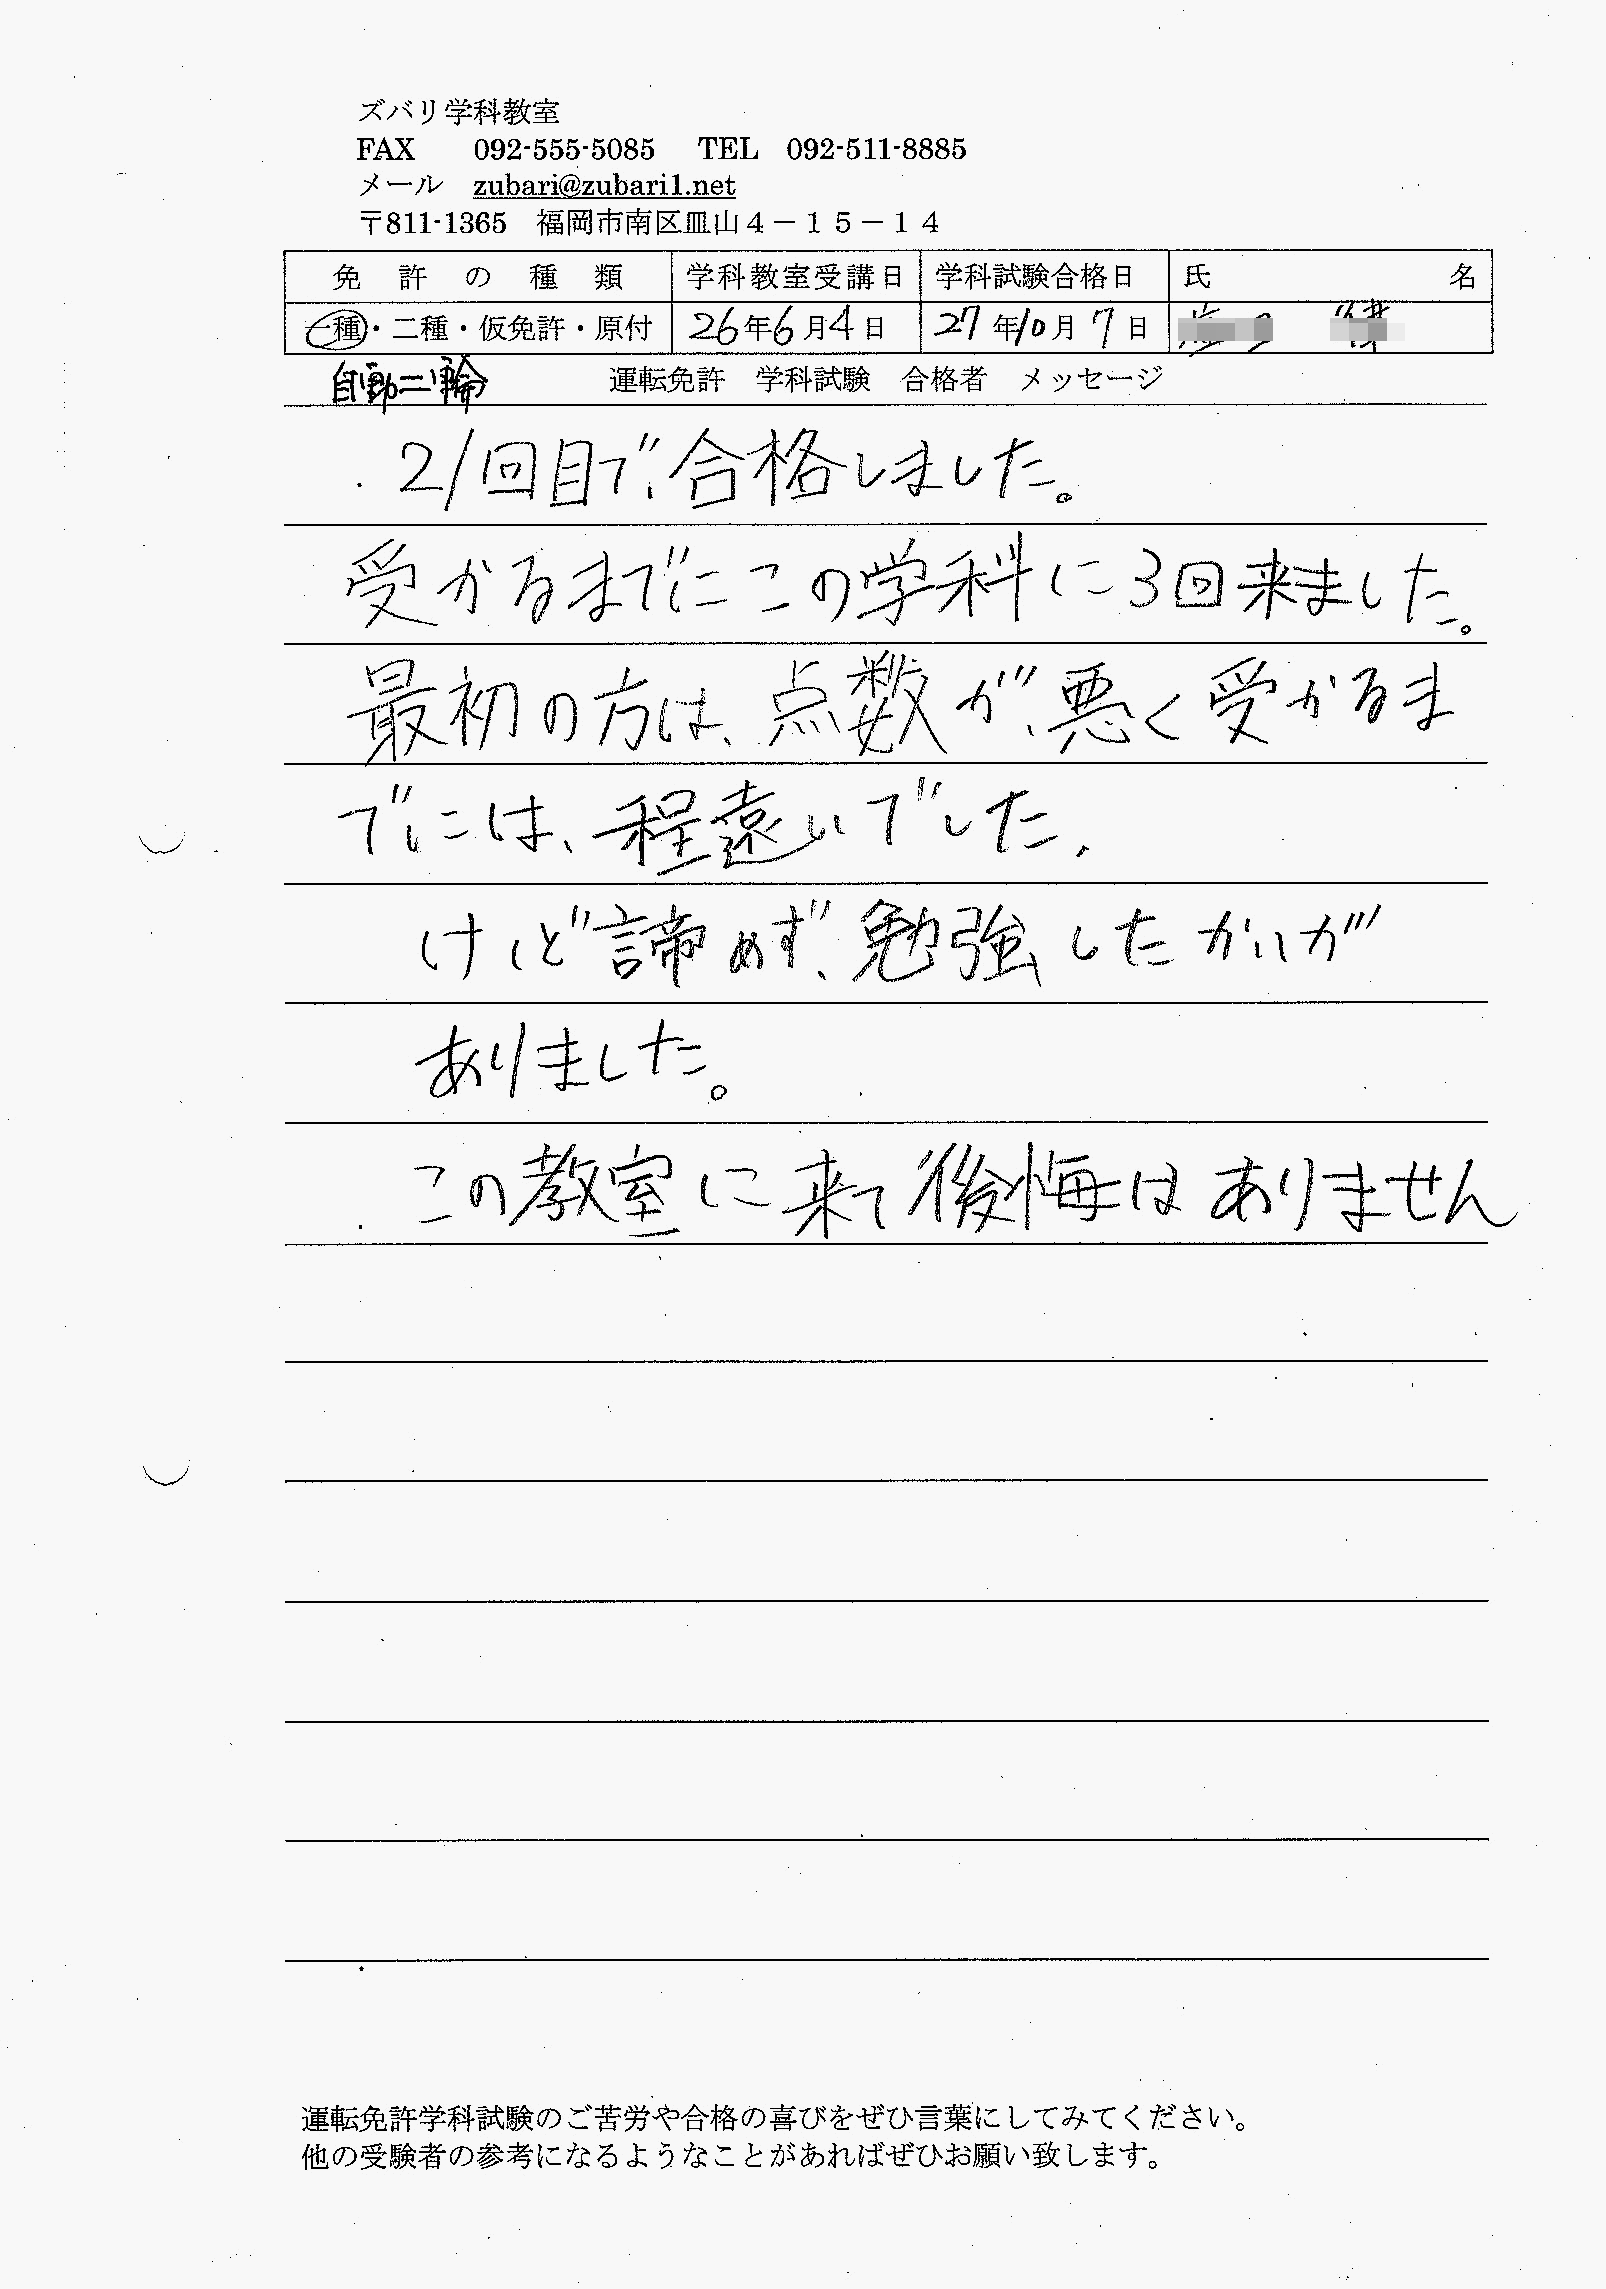 ズバリ学科教室
FAX 092-555-5085 TEL 092-511-8885
メール zubari@zubari1.net
〒811-1365 福岡市南区皿山４－１５－１４
免許の種類 学科教室受講日 学科試験合格日 氏名
一種・二種・仮免許・原付 26年6月4日 27年10月7日
自動二輪 運転免許 学科試験 合格者 メッセージ
21回目で、合格しました。
受かるまでにこの学科に3回来ました。
最初の方は、点数が、悪く受かるま
でには、程遠いでした、
けれど諦めず、勉強したかいが
ありました。
この教室に来て後悔はありません
運転免許学科試験のご苦労や合格の喜びをぜひ言葉にしてみてください。
他の受験者の参考になるようなことがあればぜひお願い致します。